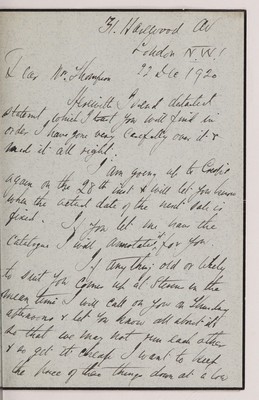 31. Harewood Av
London N.W.1
22 Dec 1920
Dear Mr. Thompson
Herewith I send detailed
statement, which I trust you will find in
order I have gone very carefully over it &
made it all right.
I am going up to
again on the 28th inst & will let you know
when the actual date of the next sale is
fixed. If you let me have the
catalogue I will annotate it for you
If any thing old or likely
to suit you comes up at Stevens in the
mean time I will call on you on Thursday
afternoon & let you know all about it
so that we may not run each other
& so get it cheap I want to keep
the price of these things down at a low